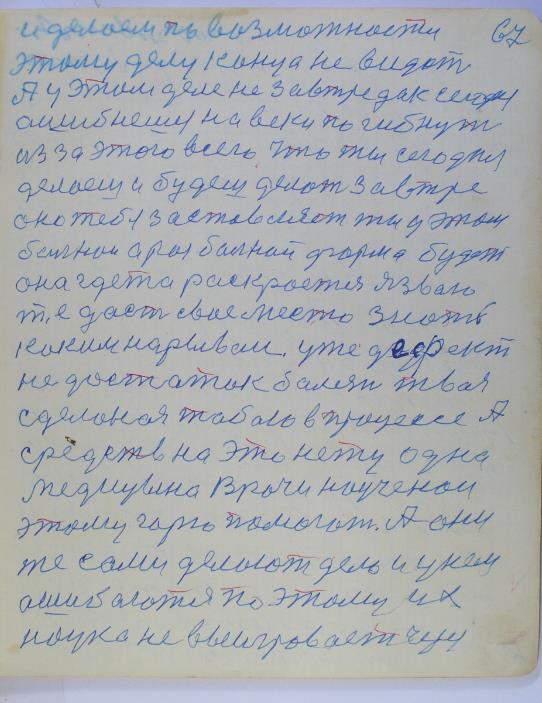 и делоем по возможности 67
этому делу конца не видат
А у этом деле не завтре дак сегодня
ошибнешу на веки погибнут
из за этого всего. Что ты сегодня
делоеш и будеш делот завтре
оно тебя заставляет ты у этом
болнои а раз болной форма будет
она гдета раскроется язваю
т.е даст свае место зноть
коким нарывом. уже дефект
не достаток балезн твая
сделоная тобаю в процессе А
средств на это нету одна
медицина Врачи ноученои
этому горю помогат. А они
же сами делоют дело и у нем
ошибаются по этому их
ноука не выигровает